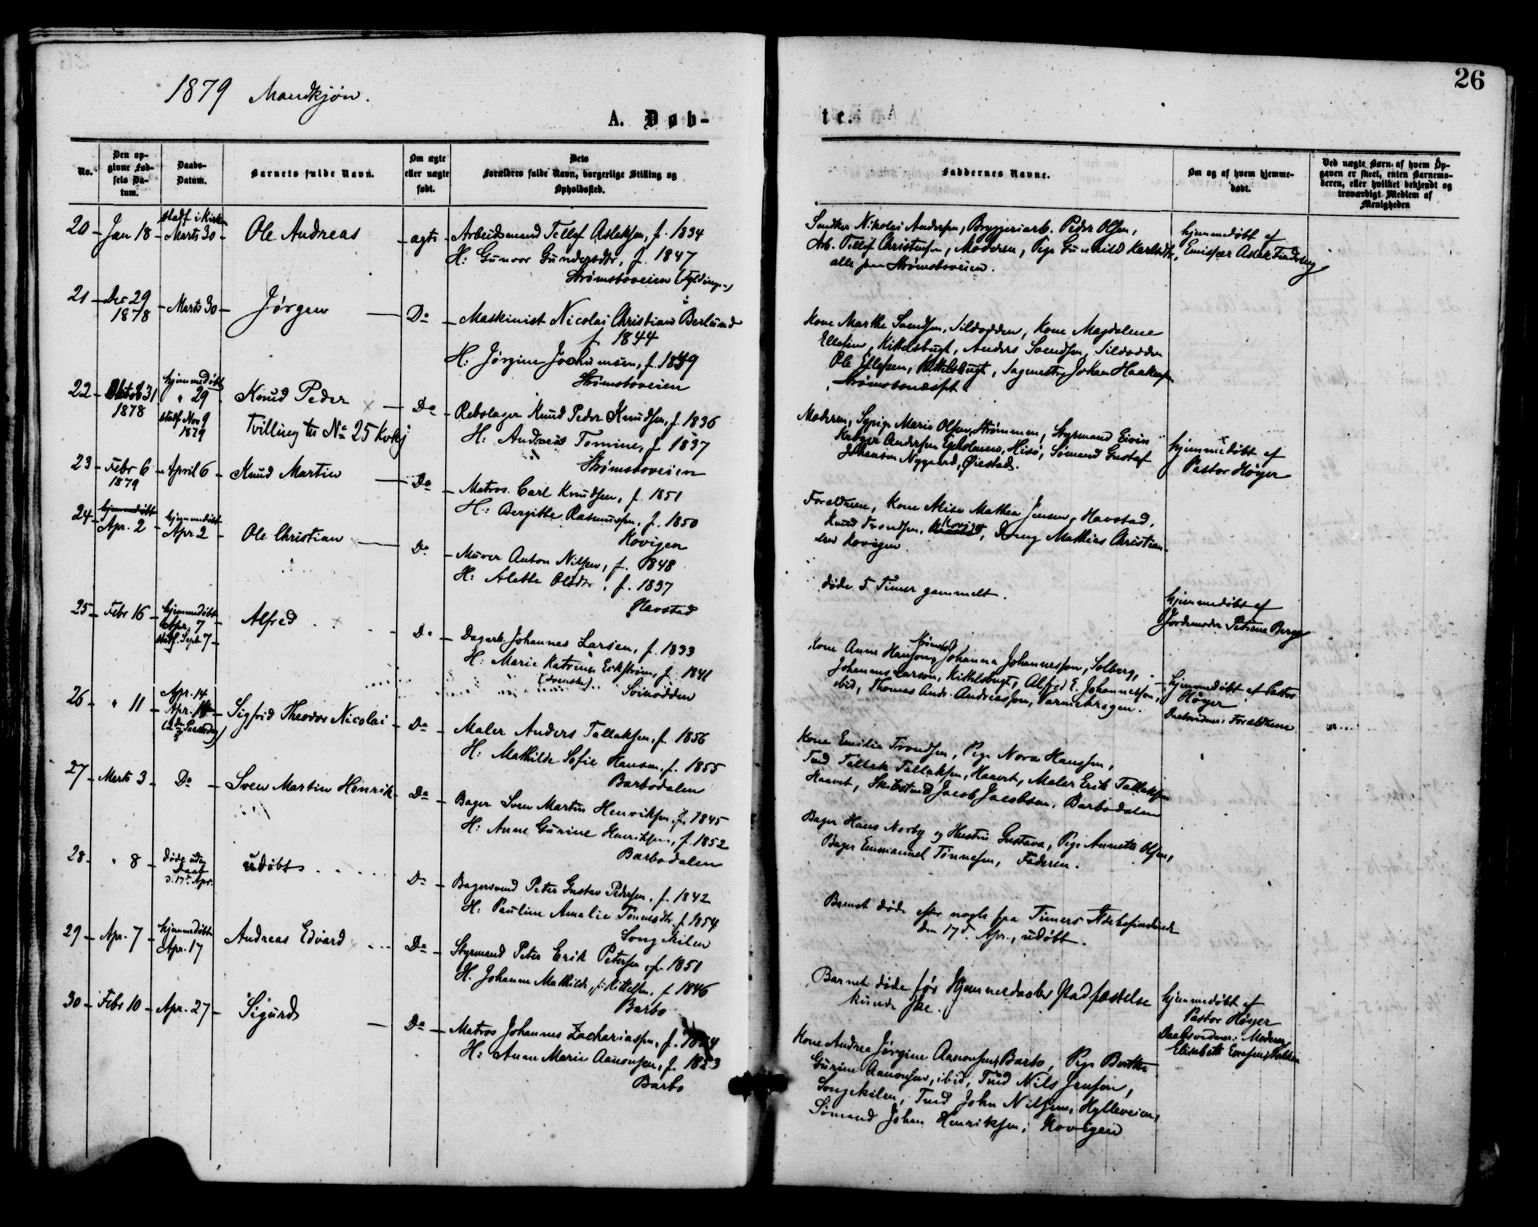 26
1879 Mandkjøn.
A. Døb-
te.
No.
Den op-
givne Fød-
sels Da-
tum.
Daabs-
Datum.
Barnets fulde Navn.
Om ægte
eller uægte
født.
Dets
Forældres fulde Navn, borgerlige Stilling og
Opholdssted.
Faddernes Navne.
Om og af hvem hjemme-
døbt.
Ved uægte Børn: af hvem Op-
gaven er skeet, enten Barnemo-
deren, eller hvilket bekjendt og
troværdigt Medlem af
Menigheden
20 Jan 18
stadf. i Kirken
Marts 30
Ole Andreas
ægte
Arbeidsmand Tellef Aslaksen, f. 1834
H: Gunvor Gundersdtr, f. 1847
Strømsboveien
Snitker Nikolai Andersen, Bryggeriarb. Peder Olsen,
Arb. Tellef Christensen, Moderen, Pige Gunhild
alle paa Strømsboveien.
hjemmedøbt af
21 Dec 29
1878
Marts 30
Jørgen
Do
Maskinist Nicolai Christian Berlund
f. 1844
H: Jørgine Jochumsen, f. 1849
Strømsboveien
Kone Marthe Svendsen, Sildodden, Kone Magdalene
Ellefsen, Kittelsbugt, Anders Svendsen, Sildodden
Ole Ellefsen, Kittelsbugt, Sagmester Johan Haaksen
22 Oktob 31
1878
hjemmedøbt
" 29
stadf. Nov 9
1879
Knud Peder
Tvilling til No 25 Kvkj
Do
Rebslager Knud Peder Knudsen, f. 1836
H: Andrea Tomine, f. 1837
Strømsboveien
Moderen, Sypige Marie Olsen, Strømmen, Styrmand Eivin
Krøger Andersen Egholmen, Hisø, Sømand Gustaf
Johansen Nygaard, Øiestad.
hjemmedøbt af
Pastor Høyer
23 Febr 6
1879
April 6
Knud Martin
Do
Matros Carl Knudsen, f. 1851
H: Bergitte Rasmussen, f. 1850
Kovigen
Forældrene, Kone Alise Mathea Jensen, Havstad,
Knud Trondsen, Kovigen, Dreng Mathias Christian-
sen Kovigen
24
Apr. 2
hjemmedøbt
Apr 2
Ole Christian
Do
Murer Anton Nilsen, f. 1848
H: Alette Olsdtr, f. 1837
Havstad
døde 5 Timer gammelt.
hjemmedøbt af
Jordemoder Petrine Berge
25 Febr 16
hjemmedøbt
stadf. Sept. 7
Alfred
Do
Dagarb. Johannes Larsen, f. 1833
H: Marie Katrine Erikstrøm, f. 1841
(svensk)
Svinodden
Kone Anne Hansen, Johanna Johannessen, Solberg,
Johannes Larson, Kittelsbugt, Alfred E. Johannessen,
ibid, Thomas Andr. Andreassen,
hjemmedøbt af Pastor
Høyer
Daabsvidner: Forældrene
26 " 11
Apr. 14
(2den Paaskedag)
Sigfrid Theodor Nicolai
Do
Maler Anders Tallaksen, f. 1856
H: Mathilde Sofie Hansen, f. 1855
Barbodalen
Kone Emilie Trondsen, Pige Nora Hanssen,
Tmd Tallak Tallaksen, Haavet, Maler Erik Tallaksen
Haavet, Skibstmd Jacob Jacobsen, Barbodalen
27 Marts 3
Do
Sven Martin Henrik
Do
Bager Sven Martin Henriksen, f. 1845
H: Anne Gurine Henriksen, f. 1852
Barbodalen
Bager Hans Norby og Hustru Gustava, Pige Annette Olsen,
Bager Emmanuel Tønnesen, Faderen.
28 " 8
døde uden
Daab
d. 17 Apr.
udøbt
Do
Bagersvend Peter Gustav Pedersen, f. 1842
H: Pauline Amalie Tønnesdtr, f. 1854
Songekilen
Barnet døde efter nogle faa Timers Ildebefindende
den 17de Apr., udøbt.
29 Apr. 7
hjemmedøbt
Apr. 17
Andreas Edvard
Do
Styrmand Peter Erik Petersen, f. 1851
H. Johanne Mathilde, f. Kittelsen, f. 1846
Barbo
Barnet døde før Hjemmedaabs Stadfæstelse
kunde ske.
hjemmedøbt af
Pastor Høyer
Daabsvidner: Moderen,
30 Febr 10
Apr. 27
Sigurd
Do
Matros Johannes Zachariasen, f. 1854
H: Anne Marie Aanonsen, f. 1853
Barbo
Kone Andrea Jørgine Aanonsen, Barbo, Pige Berthe
Gurine Aanonsen, ibid, Tmd Nils Jensen,
Songekilen, Tmd John Nilsen, Hylleveien,
Sømand Johan Henriksen, Kovigen